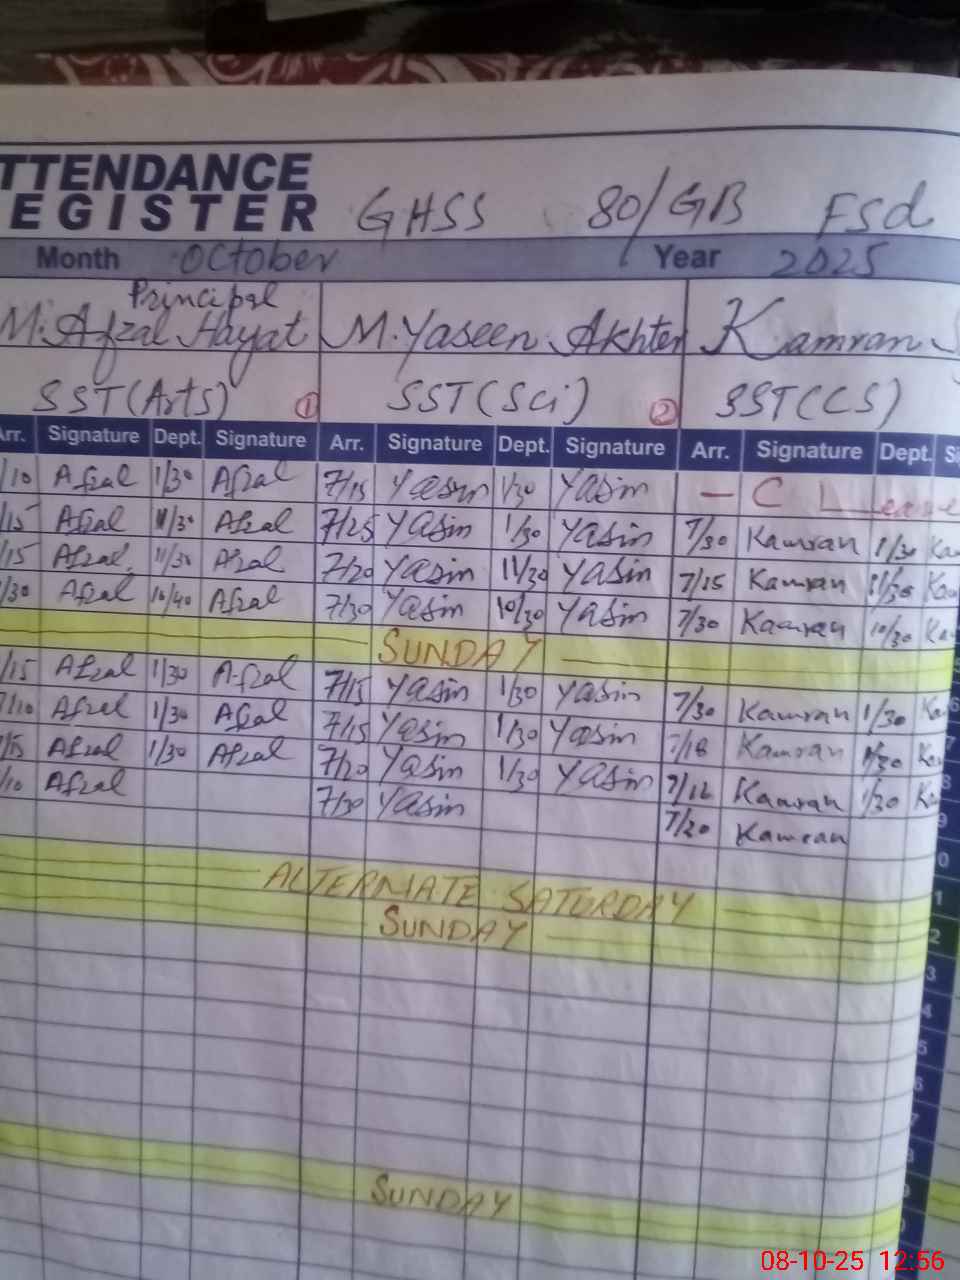 TTENDANCE
EGISTER GHSS 80/GB FSd
Month October Year 2025
Principal
M. Afzal Hayat M. Yaseen Akhter Kamran
SST (Arts) 1 SST (Sci) 2 SST (CS)
Arr. Signature Dept. Signature Arr. Signature Dept. Signature Arr. Signature Dept.
/10 Afzal 1/30 Afzal 7/15 Yasin 1/30 Yasin — C Leave
/15 Afzal Afzal 7/25 Yasin 1/30 Yasin 7/30 Kamran 1/30 Ka
/15 Afzal 11/30 Afzal 7/20 Yasin 11/30 Yasin 7/15 Kamran Ka
/30 Afzal 10/40 Afzal 7/30 Yasin 10/30 Yasin 7/30 Kamran 10/30 Ka
SUNDAY
/15 Afzal 1/30 Afzal 7/15 Yasin 1/30 Yasin 7/30 Kamran 1/30 Ka
/10 Afzal 1/30 Afzal 7/15 Yasin 1/30 Yasin /18 Kamran 1/30 Ka
/15 Afzal 1/30 Afzal 7/20 Yasin 1/30 Yasin 7/12 Kamran 1/30 Ka
/10 Afzal 7/30 Yasin 7/20 Kamran
ALTERNATE SATURDAY
SUNDAY
SUNDAY
08-10-25 12:56